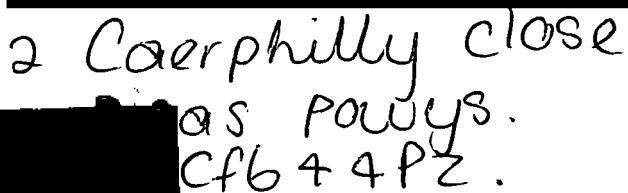 2 Caerphilly close
as powys.
Cf64 4PZ.